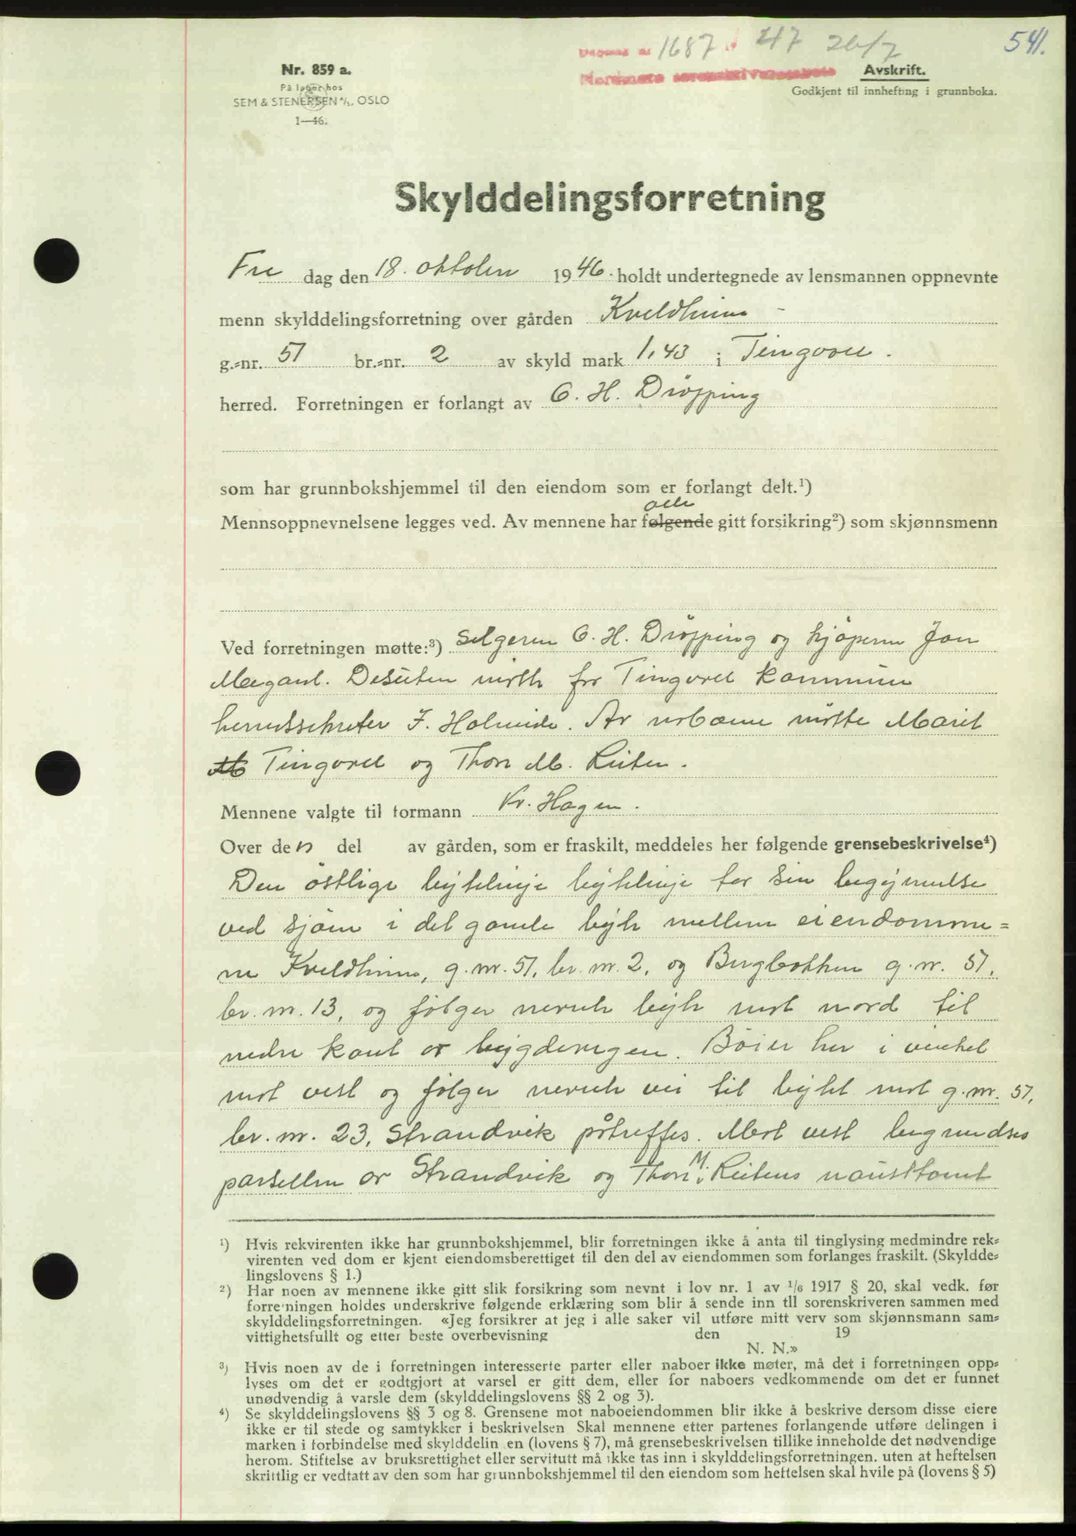 541.
1687 47 26/7
Nordmøre sorenskriverembete
Nr. 859 a.
På lager hos
SEM & STENERSEN A/S, OSLO
1—46.
Avskrift.
Godkjent til innhefting i grunnboka.
Skylddelingsforretning
Fre dag den 18. oktober 1946. holdt undertegnede av lensmannen oppnevnte
menn skylddelingsforretning over gården Kveldheim
g.-nr. 51 br.-nr. 2 av skyld mark 1,43 i Tingvoll.
herred. Forretningen er forlangt av O. H. Dröpping
som har grunnbokshjemmel til den eiendom som er forlangt delt.¹)
alle
Mennsoppnevnelsene legges ved. Av mennene har følgende gitt forsikring²) som skjønnsmenn
Ved forretningen møtte:³) Selgeren O. H. Dröpping og kjöperen Jon
Megard. Desuten mötte for Tingvoll kommune
herredssekretær J. Holmeide. Av naboene mötte Marit
Tingvoll og Thore M. Reiten.
Mennene valgte til formann Kr. Hagen.
Over den del av gården, som er fraskilt, meddeles her følgende grensebeskrivelse⁴)
Den östlige bytelinje bytelinje tar sin begynnelse
ved sjöen i det gamle byte mellem eiendomme=
ne Kveldheim, g.nr. 51, br. nr. 2, og Bergbakken g.nr. 51,
br. nr. 13, og fölger nevnte byte mot nord til
nedre kant av bygdevegen. Böier her i vinkel
mot vest og fölger nevnte vei til bytet mot g.nr. 51,
br. nr. 23, Strandvik påtreffes. Mot vest begrendses
parsellen av Strandvik og Thore M. Reitens nausttomt
¹) Hvis rekvirenten ikke har grunnbokshjemmel, blir forretningen ikke å anta til tinglysing medmindre rek-
virenten ved dom er kjent eiendomsberettiget til den del av eiendommen som forlanges fraskilt. (Skyldde-
lingslovens § 1.)
²) Har noen av mennene ikke gitt slik forsikring som nevnt i lov nr. 1 av 1/6 1917 § 20, skal vedk. før
forretningen holdes underskrive følgende erklæring som blir å sende inn til sorenskriveren sammen med
skylddelingsforretningen. «Jeg forsikrer at jeg i alle saker vil utføre mitt verv som skjønnsmann sam-
vittighetsfullt og etter beste overbevisning den 19
N. N.»
³) Hvis noen av de i forretningen interesserte parter eller naboer ikke møter, må det i forretningen opp-
lyses om det er godtgjort at varsel er gitt dem, eller for naboers vedkommende om det er funnet
unødvendig å varsle dem (skylddelingslovens §§ 2 og 3).
⁴) Se skylddelingslovens §§ 3 og 8. Grensene mot naboeiendommen blir ikke å beskrive dersom disse eiere
ikke er til stede og samtykker i beskrivelsen Skal mennene etter partenes forlangende utføre delingen i
marken i forbindelse med skylddelin en (lovens § 7), må grensebeskrivelsen tillike inneholde det nødvendige
herom. Stiftelse av bruksrettighet eller servitutt må ikke tas inn i skylddelingsforretningen. uten at heftelsen
skriftlig er vedtatt av den som har grunnbokshjemmel til den eiendom som heftelsen skal hvile på (lovens § 5)